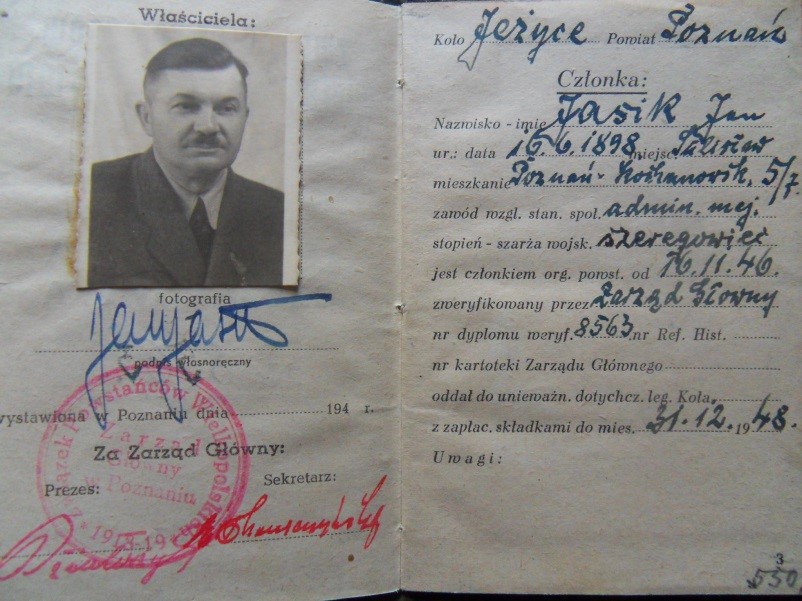 Właściciela:
fotografia
Jan Jasik
podpis własnoręczny
wystawiona w Poznaniu dnia 194 r.
Za Zarząd Główny:
Prezes: Sekretarz:
Związek Powstańców Wielkopolskich
Zarząd
Główny
w Poznaniu
1918-19
Koło Jeżyce Powiat Poznań
Członka:
Nazwisko - imię Jasik Jan
ur.: data 16.6.1898 miejsc.
mieszkanie Poznań - 5/7.
zawód wzgl. stan. społ. admin. mej.
stopień - szarża wojsk. szeregowiec
jest członkiem org. powst. od 16.11.46.
zweryfikowany przez Zarząd Główny
nr dyplomu weryf. 8563 nr Ref. Hist.
nr kartoteki Zarządu Głównego
oddał do unieważn. dotychcz. leg. Koła
z zapłac. składkami do mies. 31.12.1948.
Uwagi:
3
550.